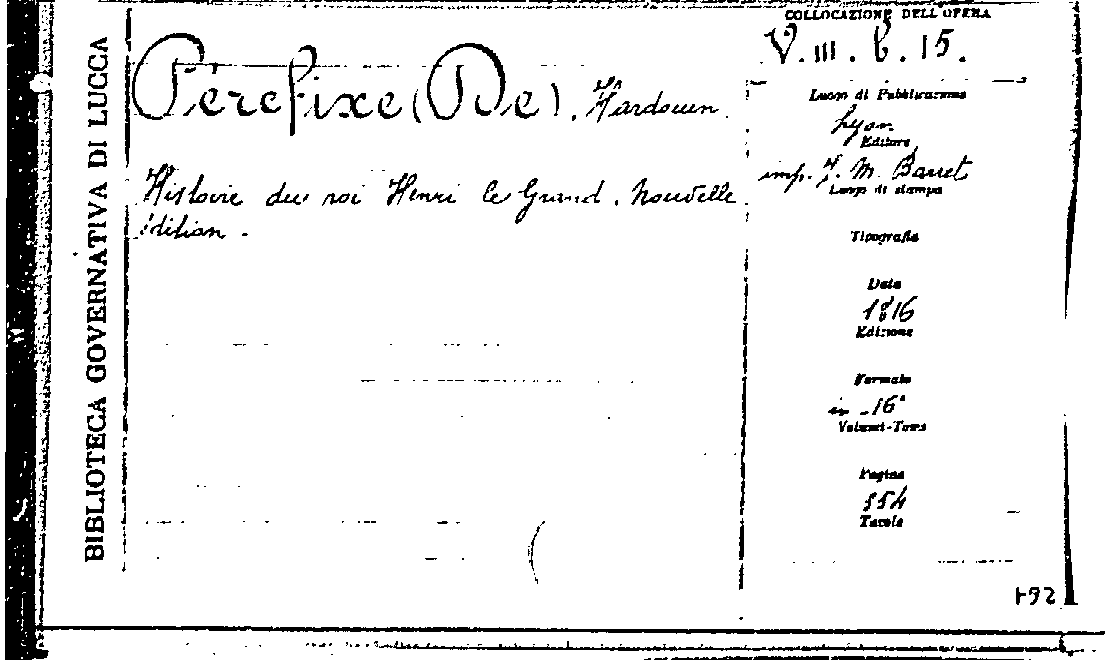 BIBLIOTECA GOVERNATIVA DI LUCCA
Pérefixe (De). Hardouin
Histoire du roi Henri le Grand. Nouvelle
édition.
COLLOCAZIONE DELL'OPERA
V. III. b. 15.
Luogo di Pubblicazione
Lyon
Editore
imp. J. M. Barret
Luogo di stampa
Tipografia
Data
1816
Edizione
Formato
in-16°
Volumi-Tomi
Pagine
554
Tavole
264